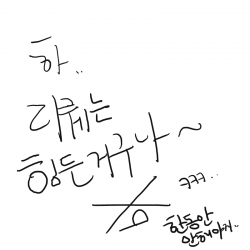 하..
리퀘는
힘든거구나~
ㅋㅋㅋ..
한동안
안해야지..